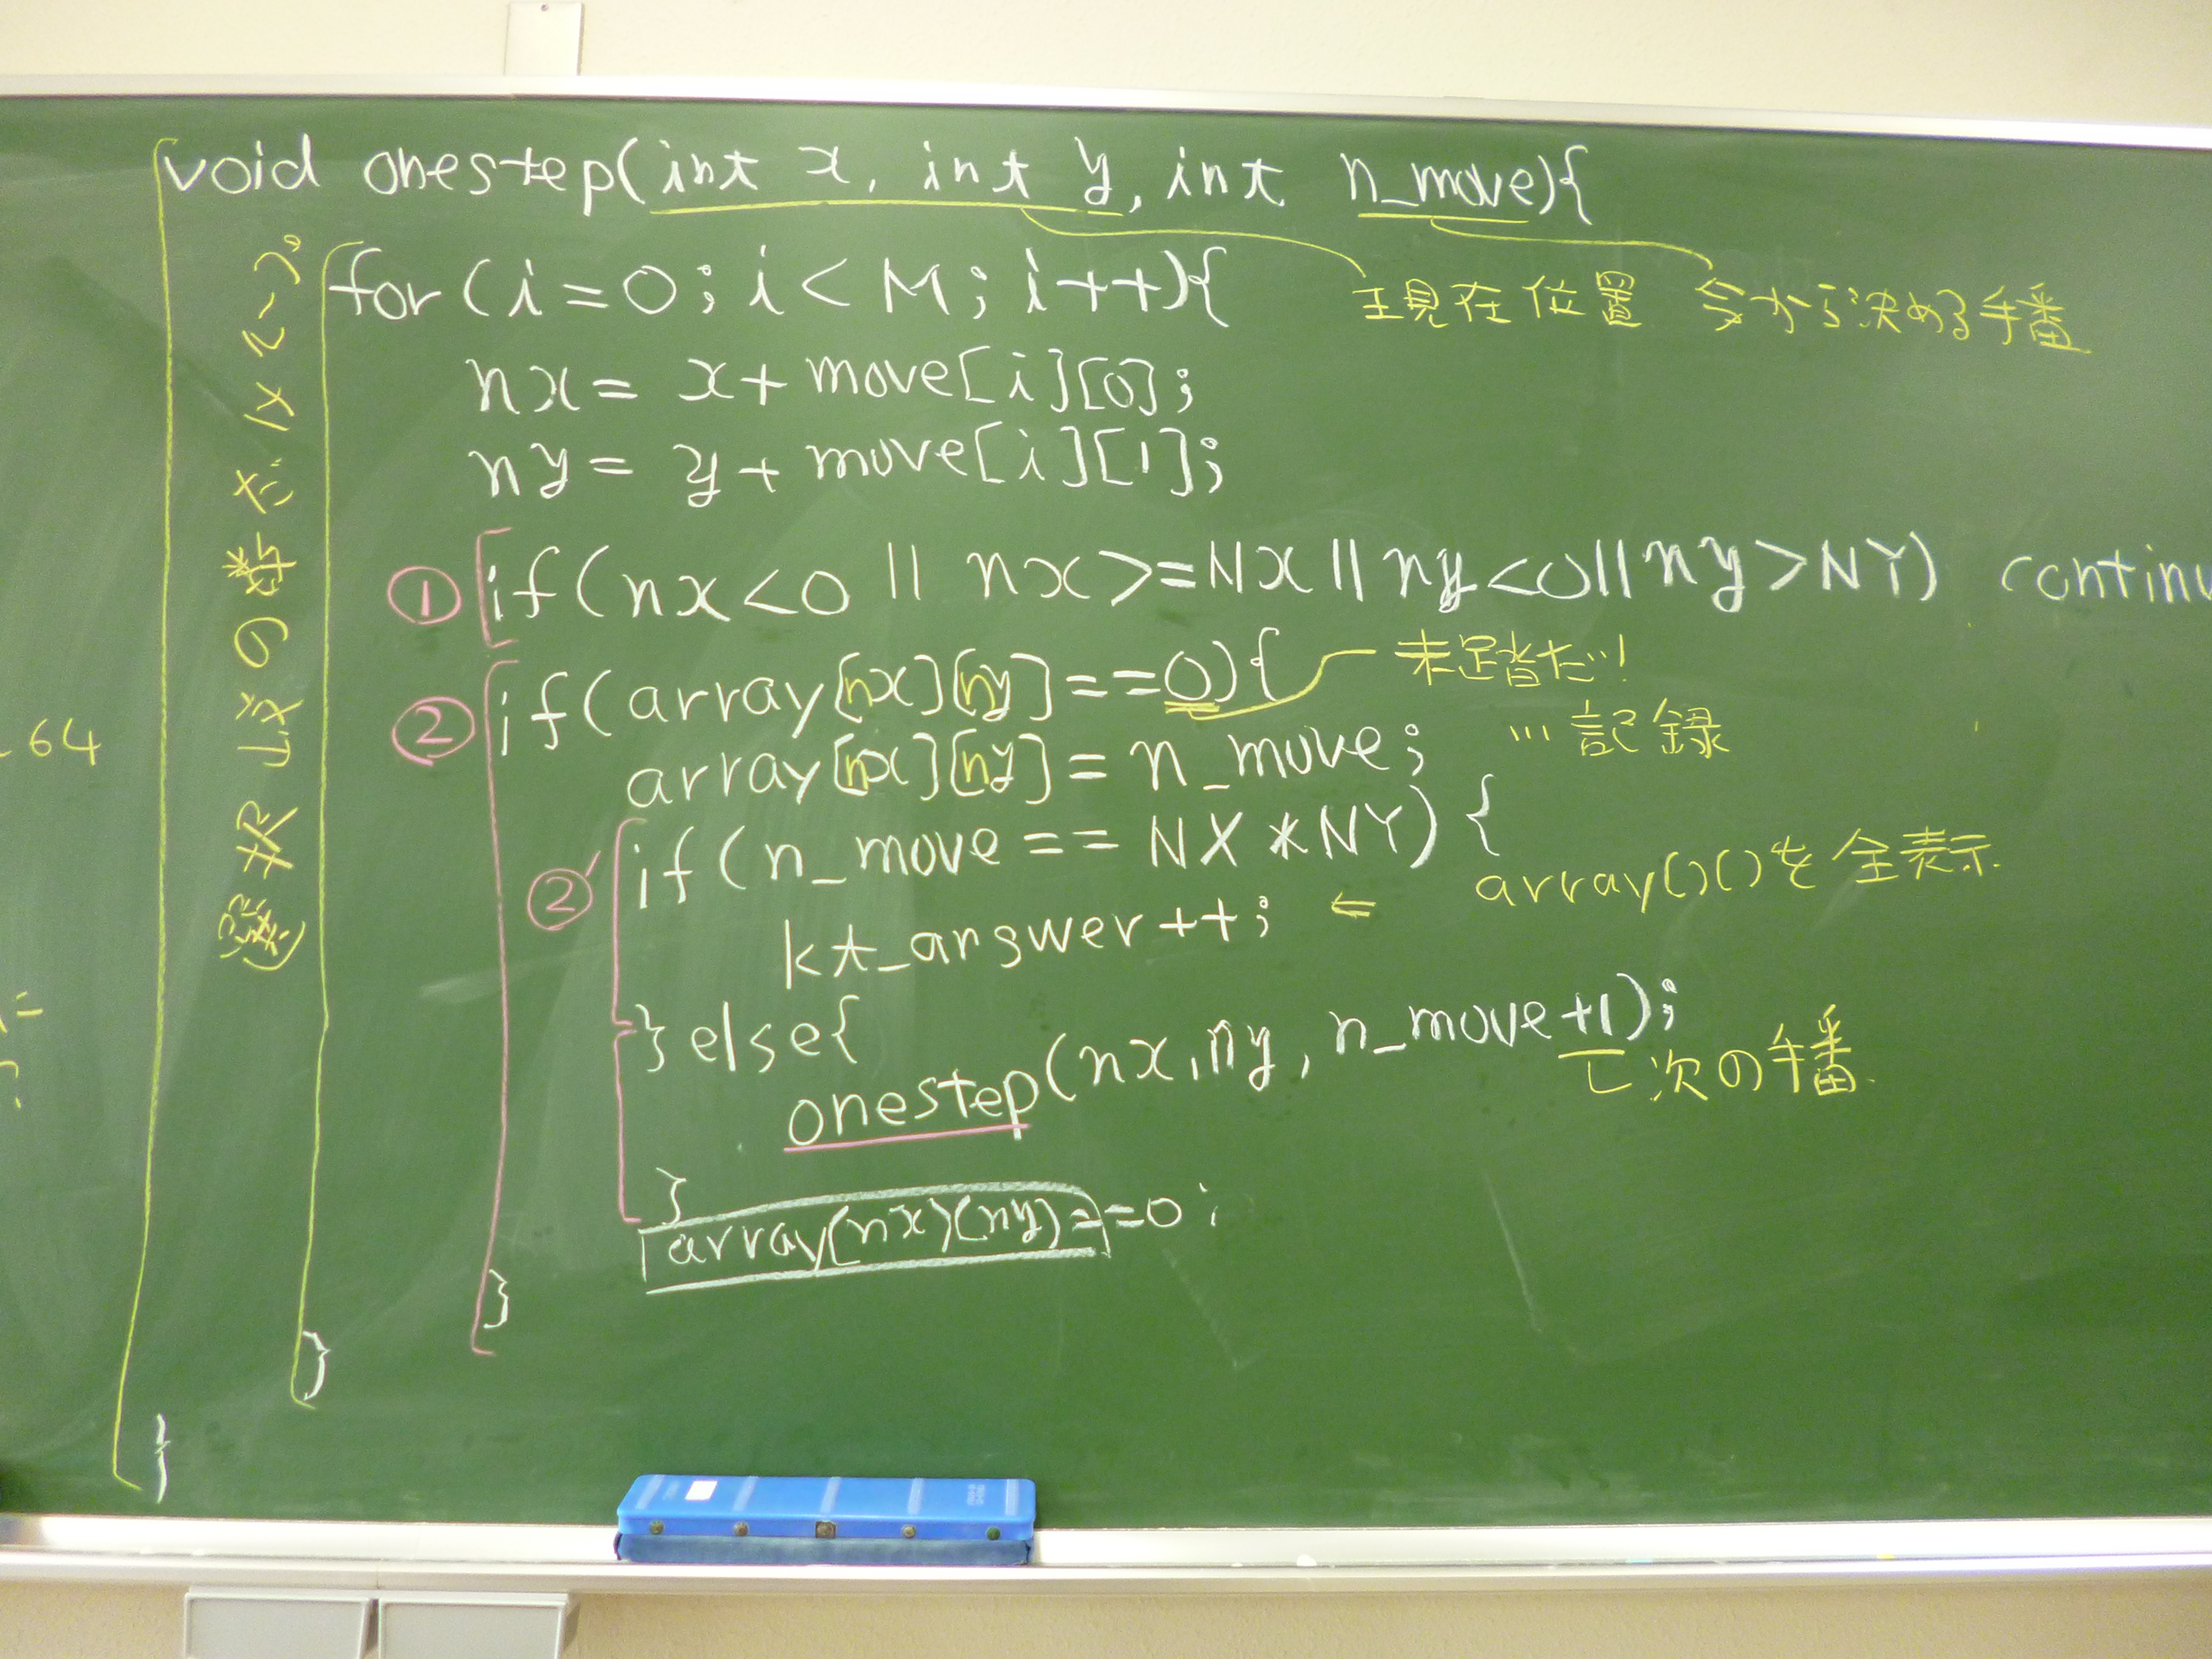 void onestep(int x, int y, int n_move){
for(i=0; i<M; i++){
現在位置 今から決める手番
nx= x+move[i][0];
ny= y+move[i][1];
① if(nx<0 || nx>=NX || ny<0 || ny>NY) continu
② if(array[nx][ny]==0){ 未足踏だ!
array[nx][ny]=n_move; …記録
②' if(n_move==NX*NY){
array()()を全表示
kt_answer++; ⇐
}else{
onestep(nx,ny,n_move+1);
次の手番
}
array(nx)(ny)==0;
}
}
}
選択肢の数だけ
64